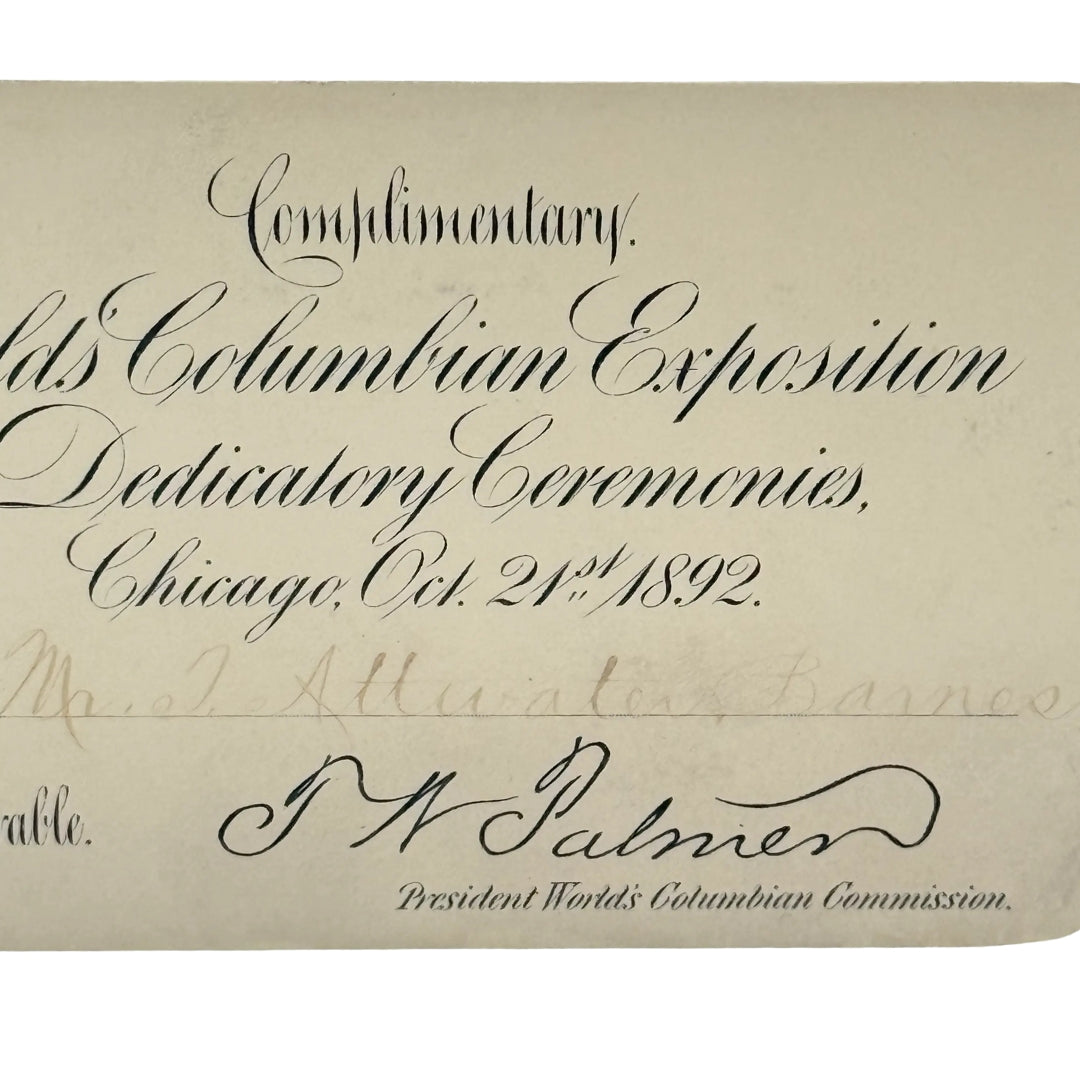 Complimentary.
lds' Columbian Exposition
Dedicatory Ceremonies,
Chicago, Oct. 21st 1892.
Mr. T. Attwater Barnes
rable.
T W Palmer
President World's Columbian Commission.